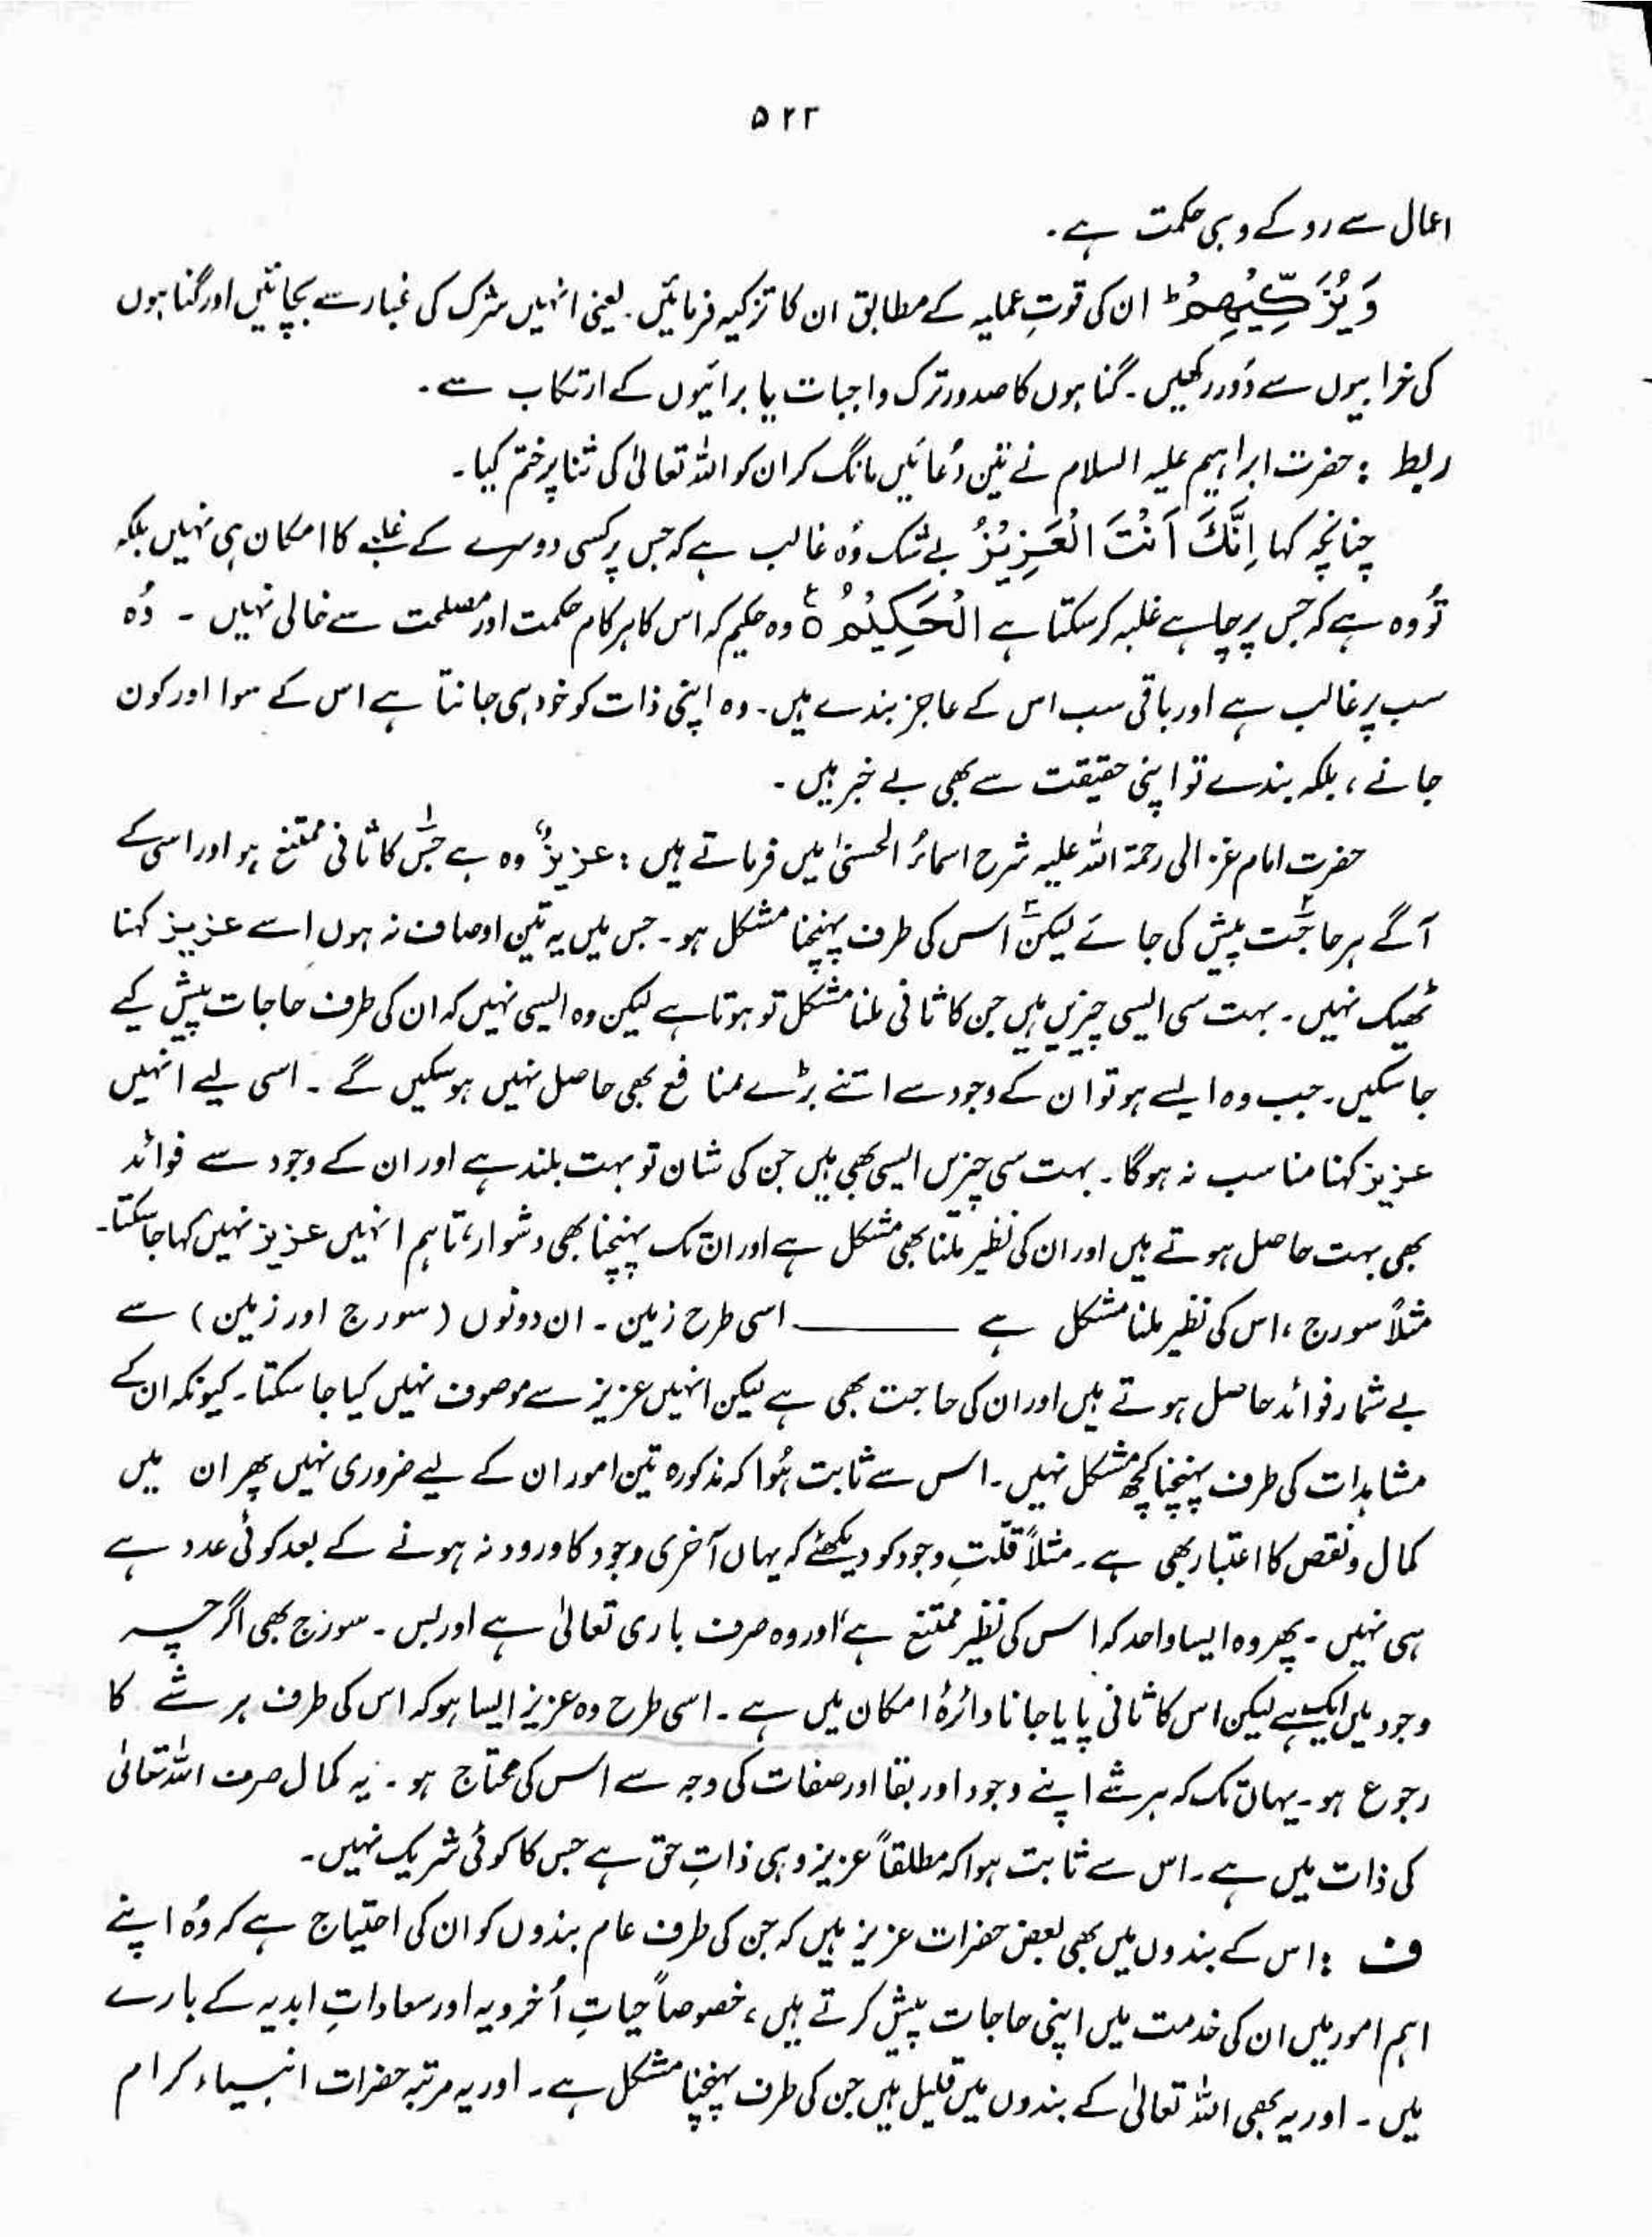 ۵۲۲
اعمال سے روکے وہی حکمت ہے۔
وَيُزَكِّيْهِمْ ؕ ان کی قوتِ عملیہ کے مطابق ان کا تزکیہ فرمائیں۔ یعنی انہیں شرک کی غبار سے بچائیں اور گناہوں
کی خرابیوں سے دُور رکھیں۔ گناہوں کا صدور ترک واجبات یا برائیوں کے ارتکاب سے۔
ربط : حضرت ابراہیم علیہ السلام نے تین دُعائیں مانگ کر ان کو اللہ تعالیٰ کی ثنا پر ختم کیا۔
چنانچہ کہا اِنَّكَ اَنْتَ الْعَزِيْزُ بے شک وُہ غالب ہے کہ جس پر کسی دوسرے کے غلبے کا امکان ہی نہیں بلکہ
تُو وہ ہے کہ جس پر چاہے غلبہ کر سکتا ہے الْحَكِيْمُ ۝ۧ وہ حکیم کہ اس کا ہر کام حکمت اور مصلحت سے خالی نہیں ۔ وُہ
سب پر غالب ہے اور باقی سب اس کے عاجز بندے ہیں۔ وہ اپنی ذات کو خود ہی جانتا ہے اس کے سوا اور کون
جانے ، بلکہ بندے تو اپنی حقیقت سے بھی بے خبر ہیں ۔
حضرت امام غزالی رحمۃ اللہ علیہ شرح اسمائُ الحسنیٰ میں فرماتے ہیں : عزیزٌ وہ ہے جس۱ کا ثانی ممتنع ہو اور اسی کے
آگے ہر حاجت۲ پیش کی جائے لیکن۳ اس کی طرف پہنچنا مشکل ہو۔ جس میں یہ تین اوصاف نہ ہوں اسے عزیز کہنا
ٹھیک نہیں ۔ بہت سی ایسی چیزیں ہیں جن کا ثانی ملنا مشکل تو ہوتا ہے لیکن وہ ایسی نہیں کہ ان کی طرف حاجات پیش کیے
جا سکیں۔ جب وہ ایسے ہو تو ان کے وجود سے اتنے بڑے منافع بھی حاصل نہیں ہو سکیں گے ۔ اسی لیے انہیں
عزیز کہنا مناسب نہ ہوگا۔ بہت سی چیزیں ایسی بھی ہیں جن کی شان تو بہت بلند ہے اور ان کے وجود سے فوائد
بھی بہت حاصل ہوتے ہیں اور ان کی نظیر ملنا بھی مشکل ہے اور ان تک پہنچنا بھی دشوار، تاہم انہیں عزیز نہیں کہا جا سکتا۔
مثلاً سورج ، اس کی نظیر ملنا مشکل ہے ـــــــــ اسی طرح زمین ۔ ان دونوں ( سورج اور زمین ) سے
بے شمار فوائد حاصل ہوتے ہیں اور ان کی حاجت بھی ہے لیکن انہیں عزیز سے موصوف نہیں کیا جا سکتا۔ کیونکہ ان کے
مشاہدات کی طرف پہنچنا کچھ مشکل نہیں ۔ اس سے ثابت ہُوا کہ مذکورہ تین امور ان کے لیے ضروری نہیں پھر ان میں
کمال و نقص کا اعتبار بھی ہے۔ مثلاً قلّتِ وجود کو دیکھئے کہ یہاں آخری وجود کا ورود نہ ہونے کے بعد کوئی عدد ہے
ہی نہیں ۔ پھر وہ ایسا واحد کہ اس کی نظیر ممتنع ہے اور وہ صرف باری تعالیٰ ہے اور بس ۔ سورج بھی اگرچہ
وجود میں ایک ہے لیکن اس کا ثانی پایا جانا دائرۂ امکان میں ہے ۔ اسی طرح وہ عزیز ایسا ہو کہ اس کی طرف ہر شے کا
رجوع ہو۔ یہاں تک کہ ہر شے اپنے وجود اور بقا اور صفات کی وجہ سے اس کی محتاج ہو ۔ یہ کمال صرف اللہ تعالیٰ
کی ذات میں ہے۔ اس سے ثابت ہوا کہ مطلقاً عزیز وہی ذاتِ حق ہے جس کا کوئی شریک نہیں۔
ف : اس کے بندوں میں بھی بعض حضرات عزیز ہیں کہ جن کی طرف عام بندوں کو ان کی احتیاج ہے کہ وُہ اپنے
اہم امور میں ان کی خدمت میں اپنی حاجات پیش کرتے ہیں ، خصوصاً حیاتِ اُخرویہ اور سعاداتِ ابدیہ کے بارے
میں ۔ اور یہ بھی اللہ تعالیٰ کے بندوں میں قلیل ہیں جن کی طرف پہنچنا مشکل ہے۔ اور یہ مرتبہ حضرات انبیاء کرام